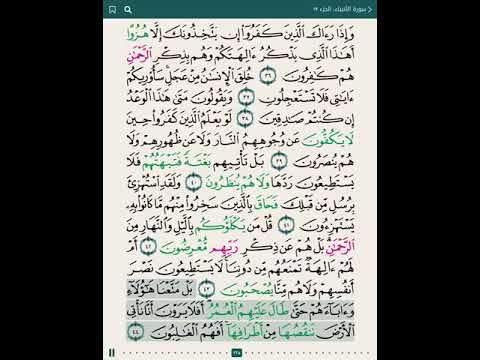 سورة الأنبياء، الجزء ١٧
وَإِذَا رَءَاكَ ٱلَّذِينَ كَفَرُوٓا۟ إِن يَتَّخِذُونَكَ إِلَّا هُزُوًا
أَهَٰذَا ٱلَّذِى يَذْكُرُ ءَالِهَتَكُمْ وَهُم بِذِكْرِ ٱلرَّحْمَٰنِ
هُمْ كَٰفِرُونَ ٣٦ خُلِقَ ٱلْإِنسَٰنُ مِنْ عَجَلٍ سَأُو۟رِيكُمْ
ءَايَٰتِى فَلَا تَسْتَعْجِلُونِ ٣٧ وَيَقُولُونَ مَتَىٰ هَٰذَا ٱلْوَعْدُ
إِن كُنتُمْ صَٰدِقِينَ ٣٨ لَوْ يَعْلَمُ ٱلَّذِينَ كَفَرُوا۟ حِينَ
لَا يَكُفُّونَ عَن وُجُوهِهِمُ ٱلنَّارَ وَلَا عَن ظُهُورِهِمْ وَلَا
هُمْ يُنصَرُونَ ٣٩ بَلْ تَأْتِيهِم بَغْتَةً فَتَبْهَتُهُمْ فَلَا
يَسْتَطِيعُونَ رَدَّهَا وَلَا هُمْ يُنظَرُونَ ٤٠ وَلَقَدِ ٱسْتُهْزِئَ
بِرُسُلٍ مِّن قَبْلِكَ فَحَاقَ بِٱلَّذِينَ سَخِرُوا۟ مِنْهُم مَّا كَانُوا۟ بِهِۦ
يَسْتَهْزِءُونَ ٤١ قُلْ مَن يَكْلَؤُكُم بِٱلَّيْلِ وَٱلنَّهَارِ مِنَ
ٱلرَّحْمَٰنِ بَلْ هُمْ عَن ذِكْرِ رَبِّهِم مُّعْرِضُونَ ٤٢ أَمْ
لَهُمْ ءَالِهَةٌ تَمْنَعُهُم مِّن دُونِنَا لَا يَسْتَطِيعُونَ نَصْرَ
أَنفُسِهِمْ وَلَا هُم مِّنَّا يُصْحَبُونَ ٤٣ بَلْ مَتَّعْنَا هَٰٓؤُلَآءِ
وَءَابَآءَهُمْ حَتَّىٰ طَالَ عَلَيْهِمُ ٱلْعُمُرُ أَفَلَا يَرَوْنَ أَنَّا نَأْتِى
ٱلْأَرْضَ نَنقُصُهَا مِنْ أَطْرَافِهَآ أَفَهُمُ ٱلْغَٰلِبُونَ ٤٤
٣٢٥